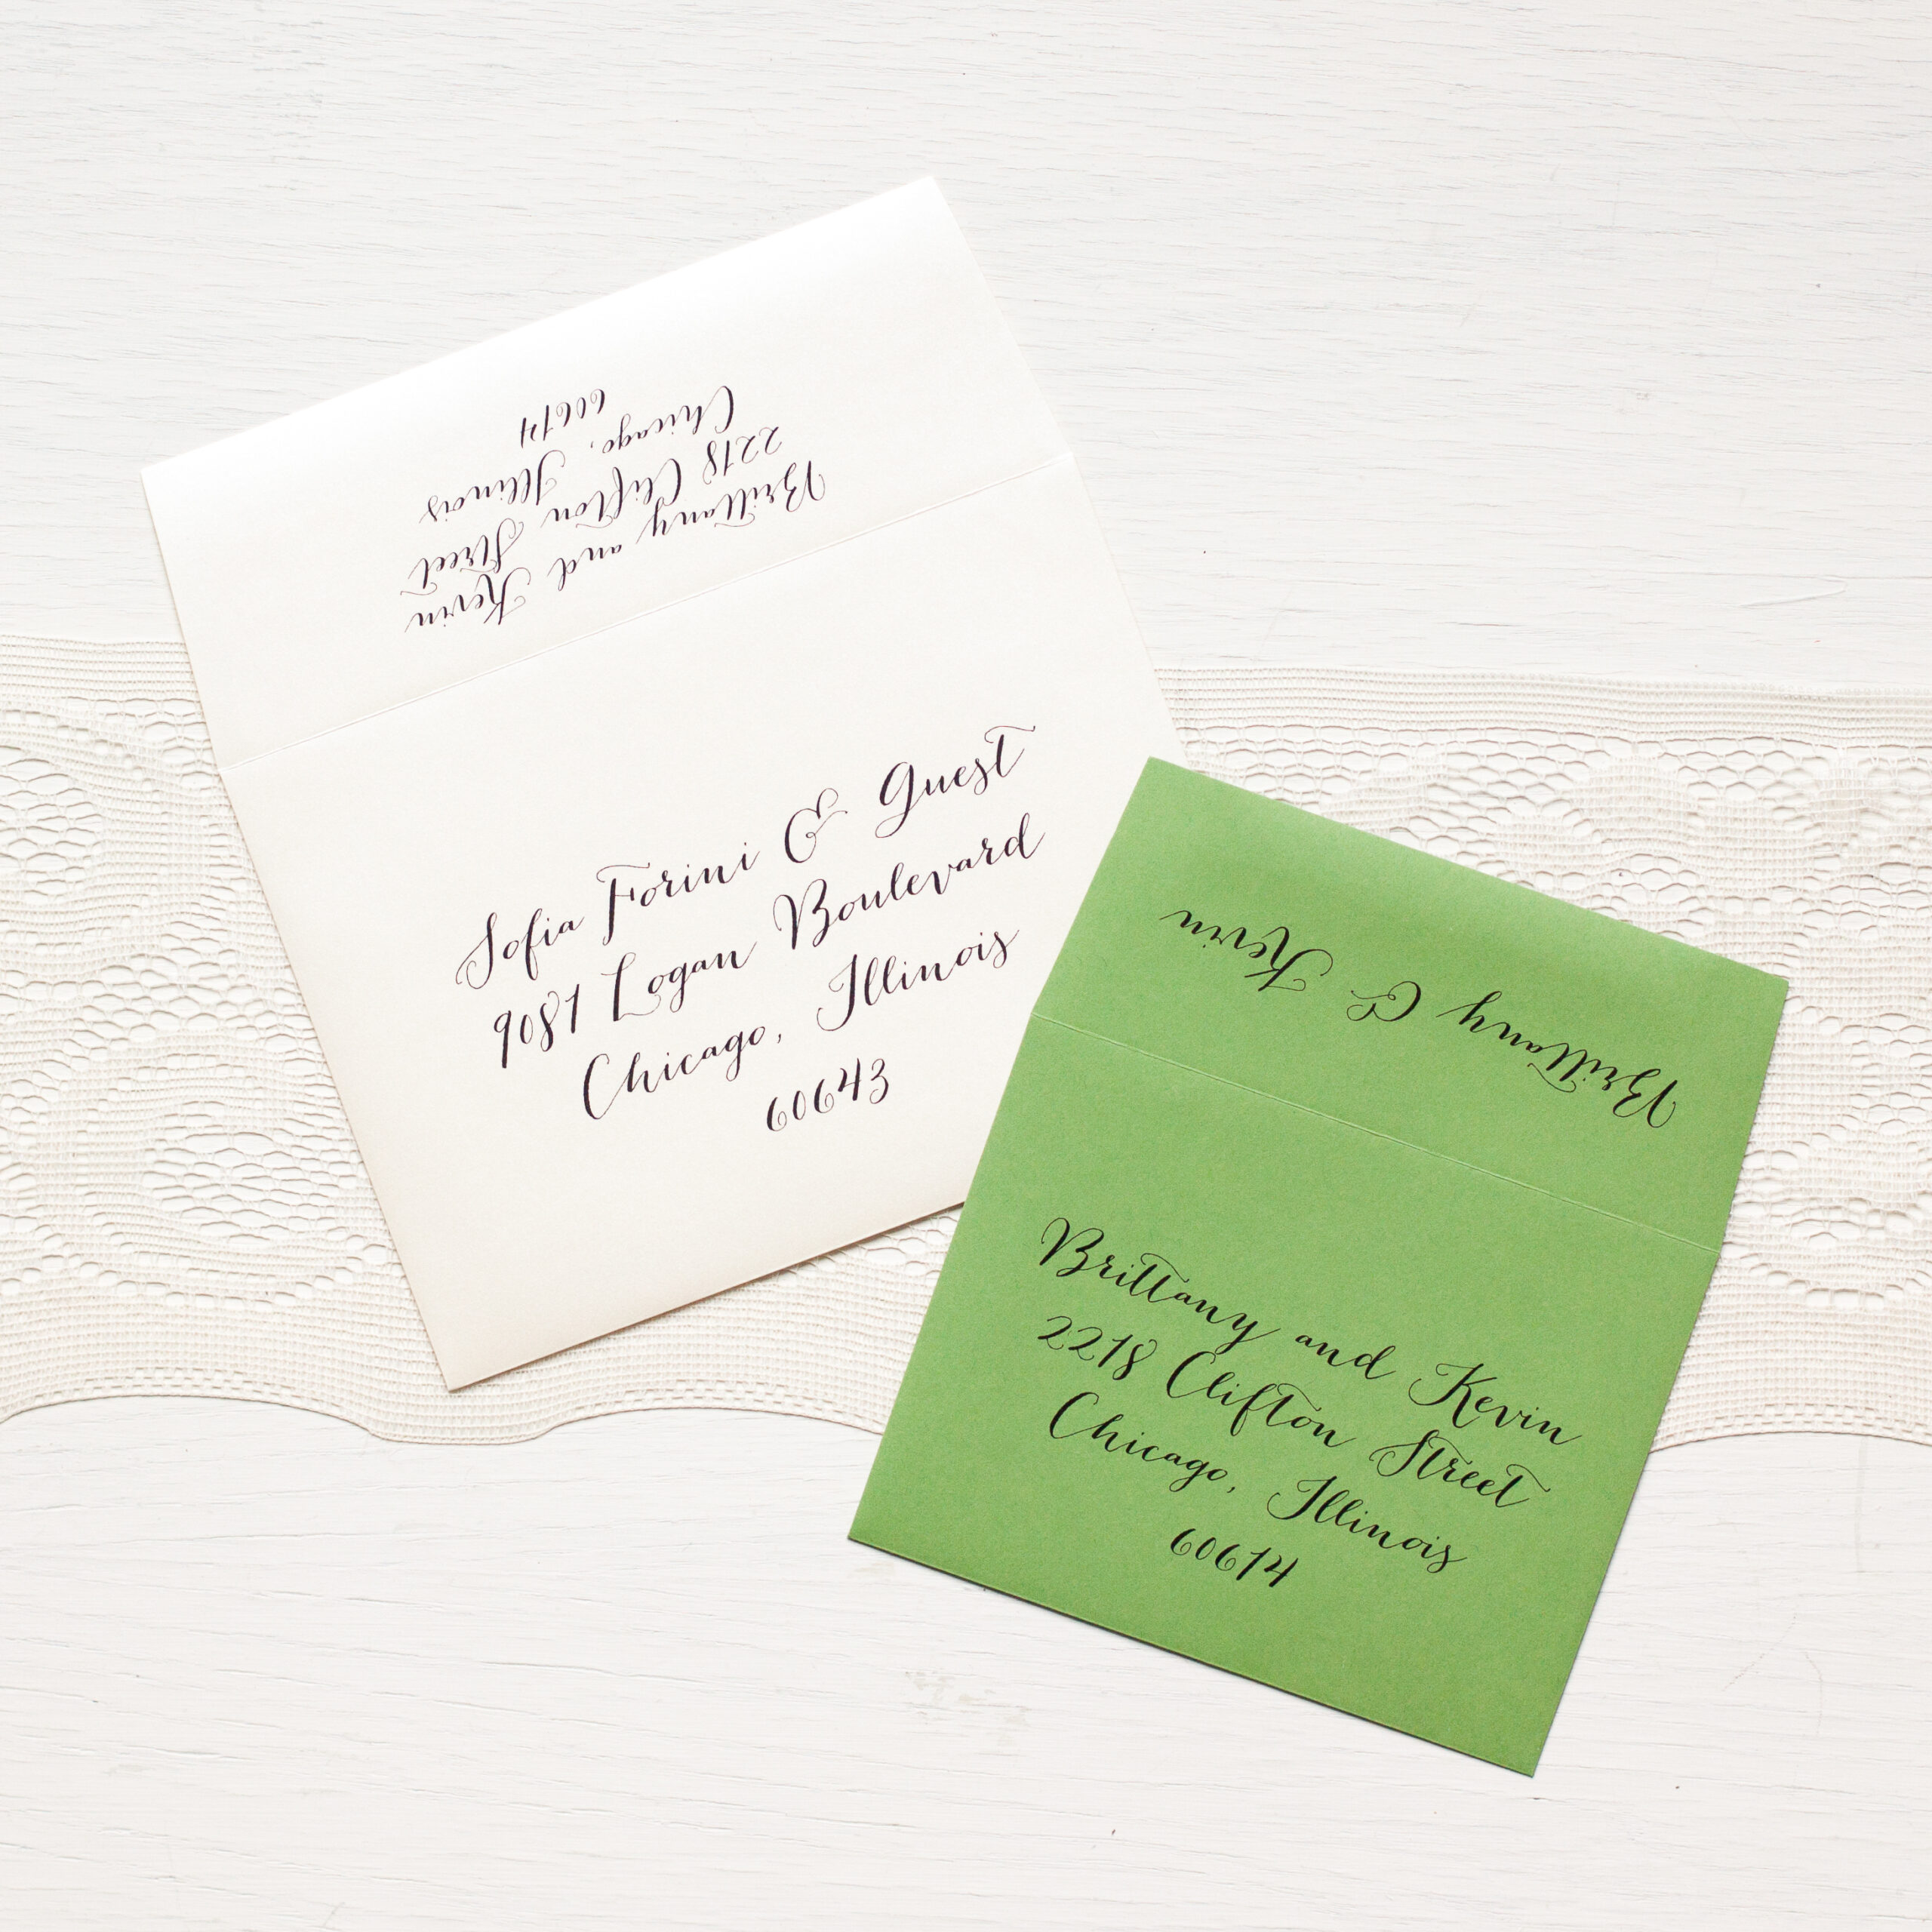 Brittany and Kevin
2218 Clifton Street
Chicago, Illinois
60614
Sofia Forini & Guest
9081 Logan Boulevard
Chicago, Illinois
60643
Brittany & Kevin
Brittany and Kevin
2218 Clifton Street
Chicago, Illinois
60614